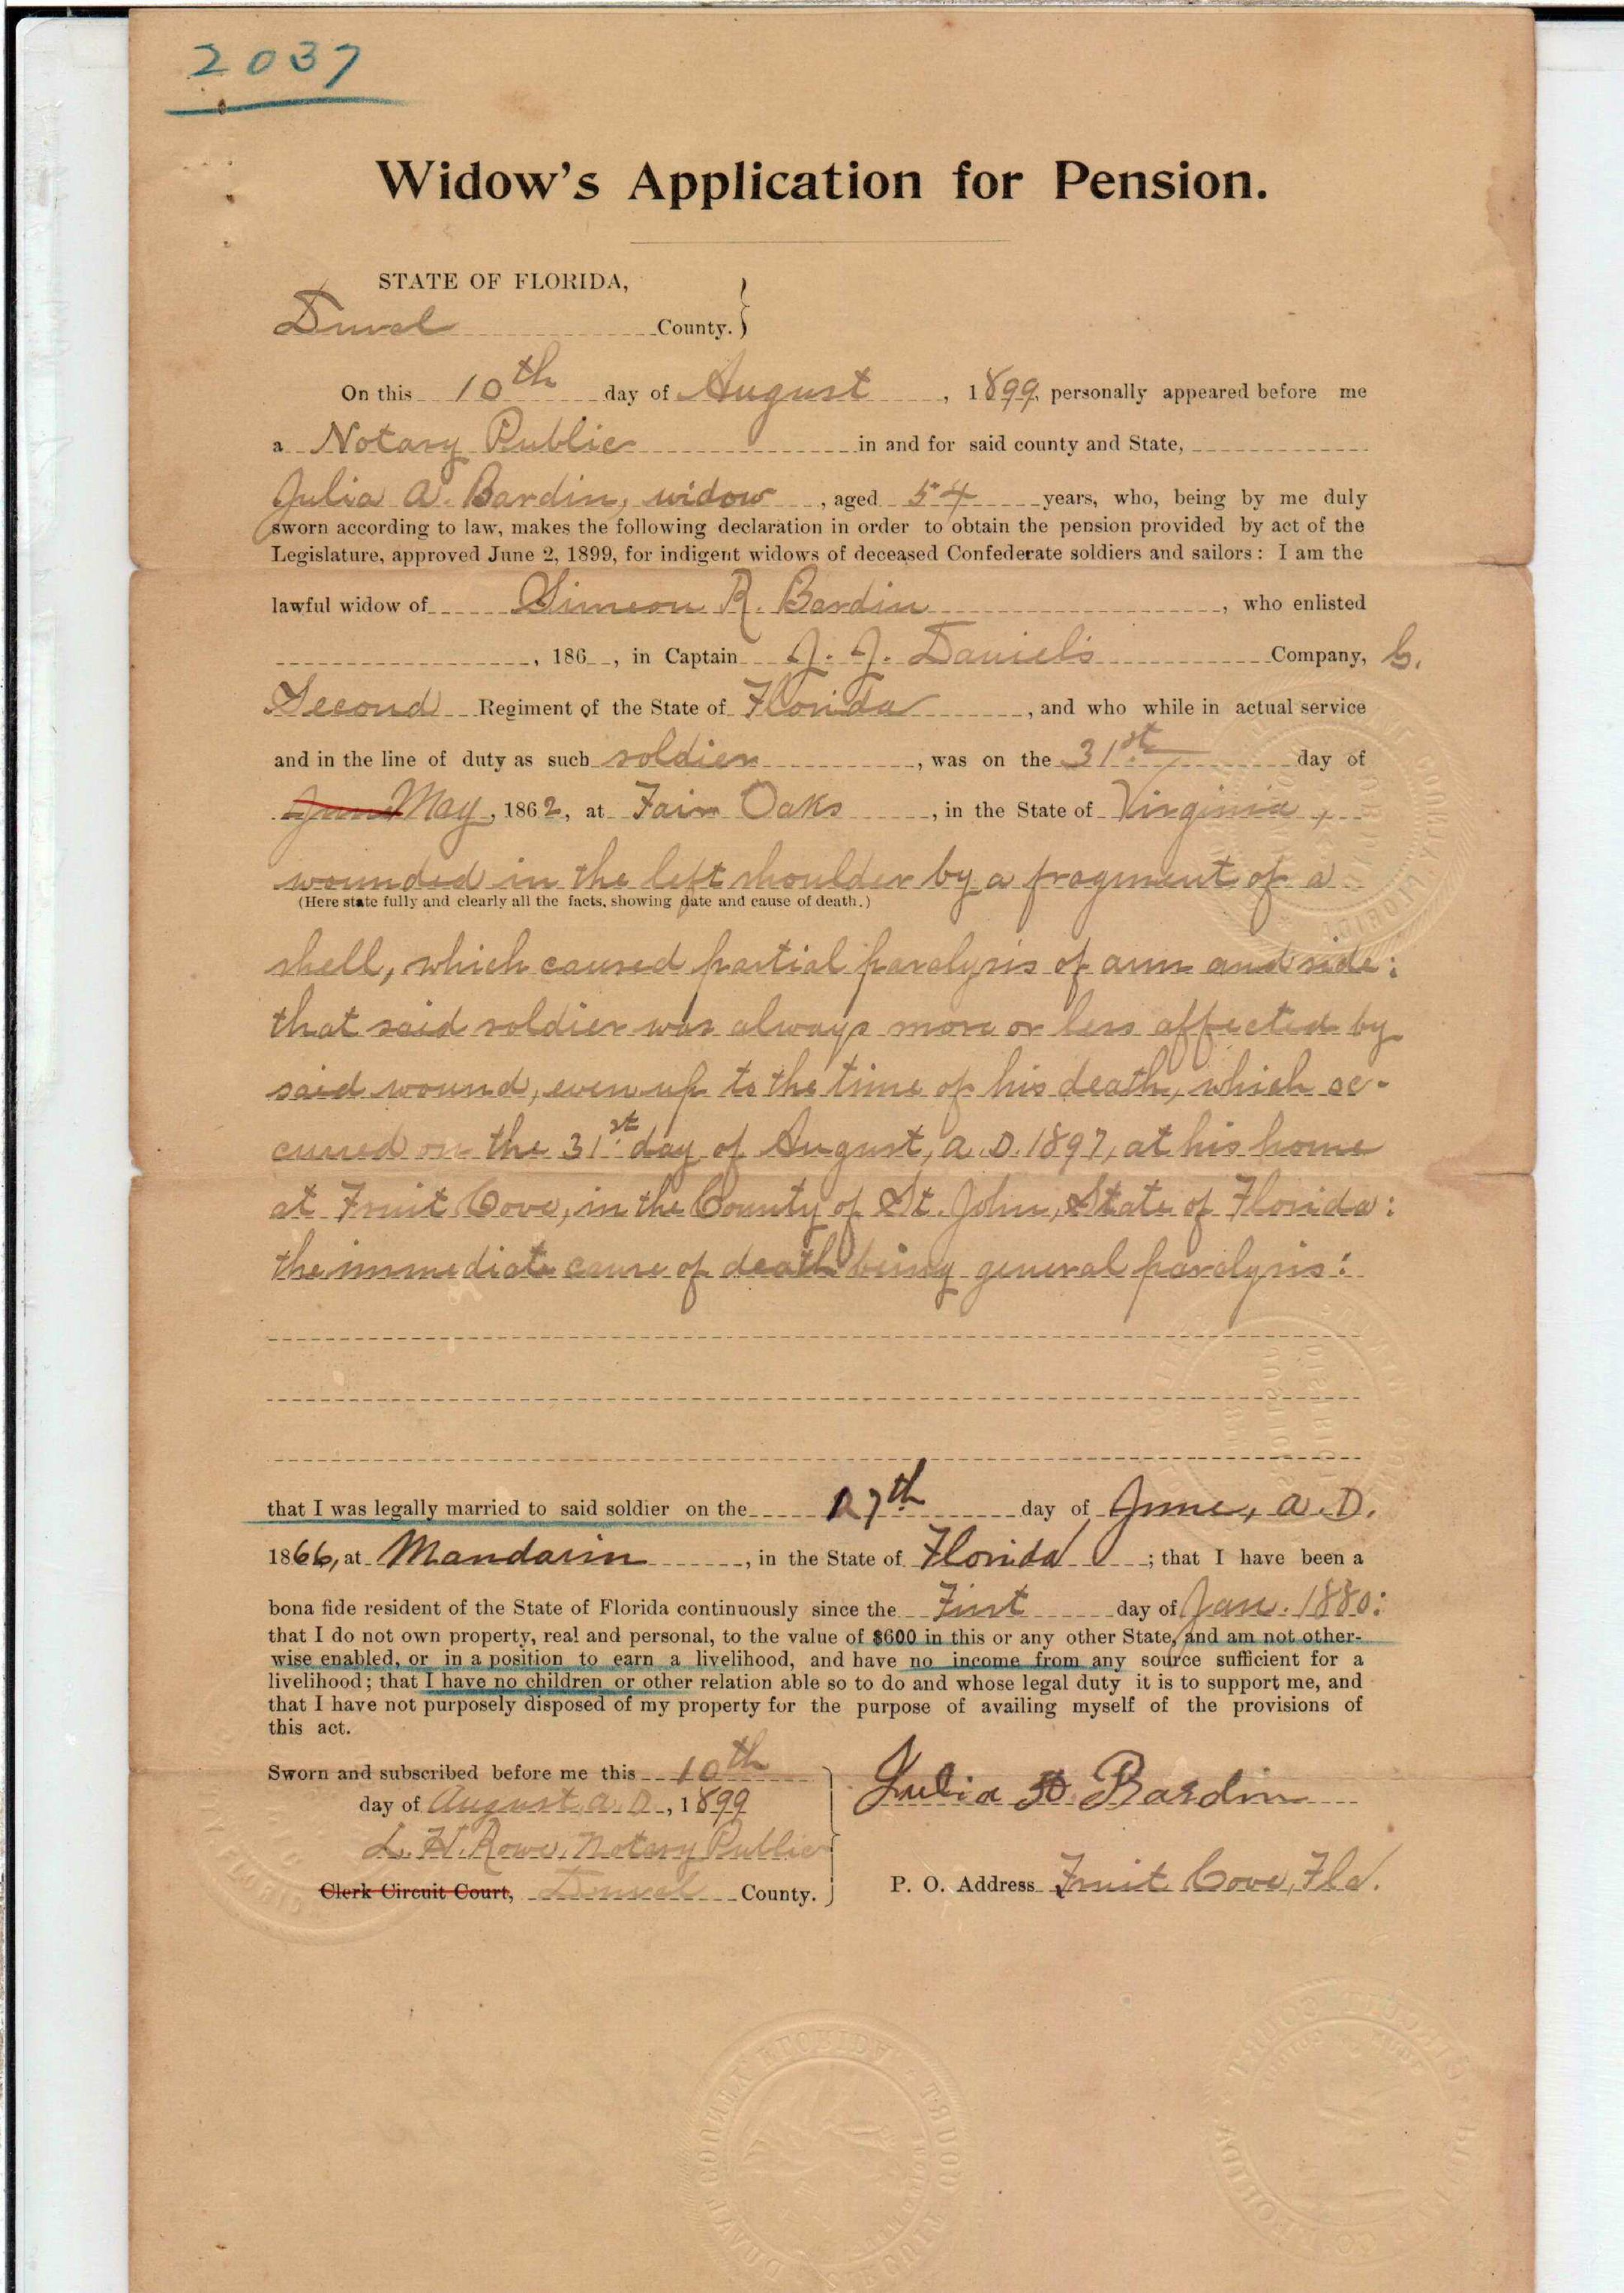 2037
Widow's Application for Pension.
STATE OF FLORIDA,
Duval County.
On this 10th day of August, 1899, personally appeared before me
a Notary Public in and for said county and State,
Julia A. Bardin, widow, aged 54 years, who, being by me duly
sworn according to law, makes the following declaration in order to obtain the pension provided by act of the
Legislature, approved June 2, 1899, for indigent widows of deceased Confederate soldiers and sailors: I am the
lawful widow of Simeon R. Bardin, who enlisted
, 186 , in Captain J. J. Daniel's Company, G.
Second Regiment of the State of Florida, and who while in actual service
and in the line of duty as such soldier, was on the 31st day of
June May, 1862, at Fair Oaks, in the State of Virginia,
wounded in the left shoulder by a fragment of a
(Here state fully and clearly all the facts, showing date and cause of death.)
shell, which caused partial paralysis of arm and side:
that said soldier was always more or less affected by
said wound, even up to the time of his death, which oc-
cured on the 31st day of August, A. D. 1897, at his home
at Fruit Cove, in the County of St. John, State of Florida:
the immediate cause of death being general paralysis:
that I was legally married to said soldier on the 27th day of June, A. D.
1866, at Mandarin, in the State of Florida; that I have been a
bona fide resident of the State of Florida continuously since the First day of Jan. 1880:
that I do not own property, real and personal, to the value of $600 in this or any other State, and am not other-
wise enabled, or in a position to earn a livelihood, and have no income from any source sufficient for a
livelihood; that I have no children or other relation able so to do and whose legal duty it is to support me, and
that I have not purposely disposed of my property for the purpose of availing myself of the provisions of
this act.
Sworn and subscribed before me this 10th
day of August A. D., 1899
L. H. Rowe, Notary Public
Clerk Circuit Court, Duval County.
Julia A. Bardin
P. O. Address Fruit Cove, Fla.